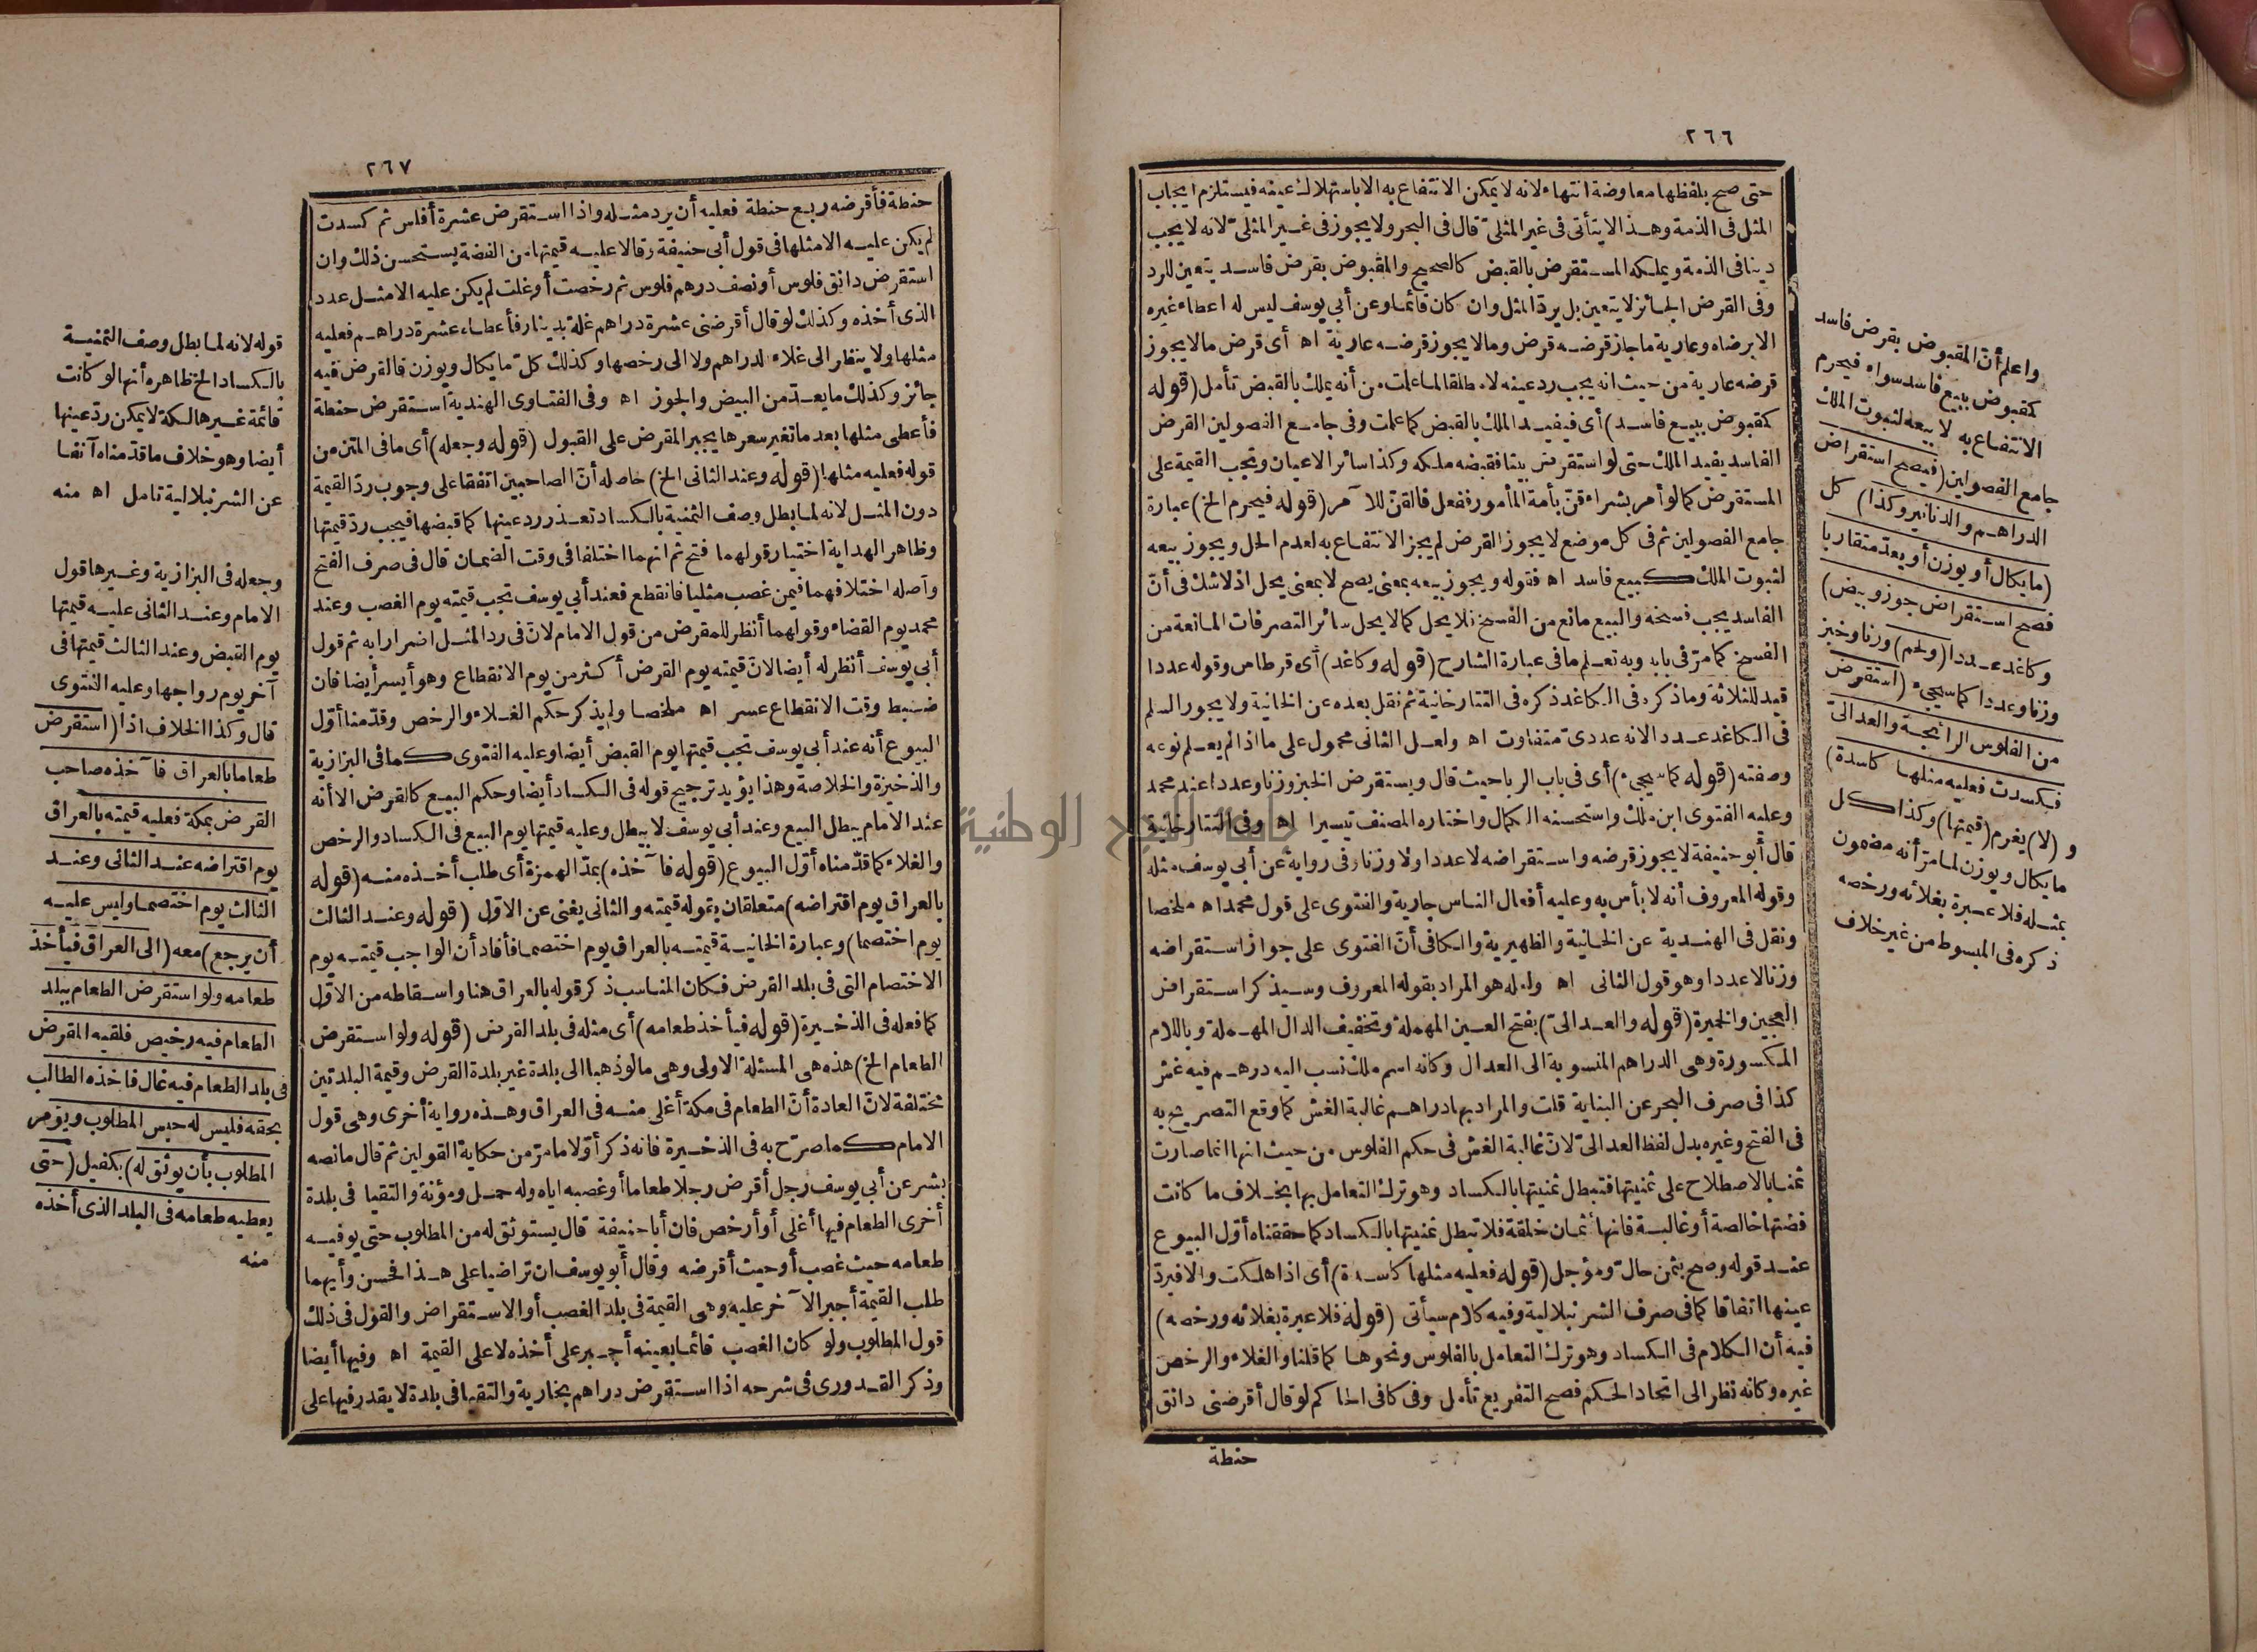 ٢٦٦
حتى صح بلفظها معاوضة انتهاء لانه لا يمكن الانتفاع به الا باستهلاك عينه فيستلزم ايجاب
المثل فى الذمة وهذا لا يتأتى فى غير المثلىّ قال فى البحر ولا يجوز فى غير المثلىّ لانه لا يجب
دينا فى الذمة ويملكه المستقرض بالقبض كالصحيح والمقبوض بقرض فاسد يتعين للرد
وفى القرض الجائز لا يتعين بل يردّ المثل وان كان قائما وعن أبي يوسف ليس له اعطاء غيره
الا برضاه وعارية ما جاز قرضه قرض وما لا يجوز قرضه عارية اه أى قرض ما لا يجوز
قرضه عارية من حيث انه يجب رد عينه لا مطلقا لما علمت من أنه يملك بالقبض تأمل (قوله
كمقبوض ببيع فاسد) أى فيفيد الملك بالقبض كما علمت وفى جامع الفصولين القرض
الفاسد يفيد الملك حتى لو استقرض بيتا فقبضه ملكه وكذا سائر الاعيان وتجب القيمة على
المستقرض كما لو أمر بشراء قنّ بأمة المأمور ففعل فالقنّ للآمر (قوله فيحرم الخ) عبارة
جامع الفصولين ثم فى كل موضع لا يجوز القرض لم يجز الانتفاع به لعدم الحل ويجوز بيعه
لثبوت الملك كبيع فاسد اه فقوله ويجوز بيعه بمعنى يصح لا بمعنى يحل اذ لا شك فى أنّ
الفاسد يجب فسخه والبيع مانع من الفسخ فلا يحل كما لا يحل سائر التصرفات المانعة من
الفسخ كما مرّ فى بابه وبه تعلم ما فى عبارة الشارح (قوله وكاغد) أى قرطاس وقوله عددا
قيد للثلاثة وما ذكره فى الكاغد ذكره فى التتارخانية ثم نقل بعده عن الخانية ولا يجوز السلم
فى الكاغد عددا لانه عددىّ متفاوت اه ولعل الثانى محمول على ما اذا لم يعلم نوعه
وصفته (قوله كما سيجىء) أى فى باب الربا حيث قال ويستقرض الخبز وزنا وعددا عند محمد
وعليه الفتوى ابن ملك واستحسنه الكمال واختاره المصنف تيسيرا اه وفى التتارخانية
قال أبو حنيفة لا يجوز قرضه واستقراضه لا عددا ولا وزنا وفى رواية عن أبي يوسف مثله
وقوله المعروف أنه لا بأس به وعليه أفعال الناس جارية والفتوى على قول محمد اه ملخصا
ونقل فى الهندية عن الخانية والظهيرية والكافى أنّ الفتوى على جواز استقراضه
وزنا لا عددا وهو قول الثانى اه ولعله هو المراد بقوله المعروف وسيذكر استقراض
العجين والخميرة (قوله والعدالىّ) بفتح العين المهملة وتخفيف الدال المهملة وباللام
المكسورة وهى الدراهم المنسوبة الى العدال وكأنه اسم ملك نسب اليه درهم فيه غش
كذا فى صرف البحر عن البناية قلت والمراد بها دراهم غالبة الغش كما وقع التصريح به
فى الفتح وغيره بدل لفظ العدالىّ لانّ غالبة الغش فى حكم الفلوس من حيث انها انما صارت
ثمنا بالاصطلاح على ثمنيتها فتبطل ثمنيتها بالكساد وهو ترك التعامل بها بخلاف ما كانت
فضتها خالصة أو غالبة فانها أثمان خلقة فلا تبطل ثمنيتها بالكساد كما حققناه أوّل البيوع
عند قوله وصح بثمن حالّ ومؤجل (قوله فعليه مثلها كاسدة) أى اذا هلكت والا فيردّ
عينها اتفاقا كما فى صرف الشرنبلالية وفيه كلام سيأتى (قوله فلا عبرة بغلائه ورخصه)
فيه أن الكلام فى الكساد وهو ترك التعامل بالفلوس ونحوها كما قلنا والغلاء والرخص
غيره وكأنه نظر الى اتحاد الحكم فصح التفريع تأمل وفى كافى الحاكم لو قال أقرضنى دانق
حنطة
واعلم أنّ المقبوض بقرض فاسد
كمقبوض ببيع فاسد سواء فيحرم
الانتفاع به لا بيعه لثبوت الملك
جامع الفصولين (فيصح استقراض
الدراهم والدنانير وكذا) كل
(ما يكال أو يوزن أو يعدّ متقاربا
فصح استقراض جوز وبيض)
وكاغد عددا (ولحم) وزنا وخبز
وزنا وعددا كما سيجىء (استقرض
من الفلوس الرائجة والعدالىّ
فكسدت فعليه مثلها كاسدة)
و (لا) يغرم (قيمتها) وكذا كل
ما يكال ويوزن لما مرّ أنه مضمون
بمثله فلا عبرة بغلائه ورخصه
ذكره فى المبسوط من غير خلاف
٢٦٧
حنطة فأقرضه ربع حنطة فعليه أن يرد مثله واذا استقرض عشرة أفلس ثم كسدت
لم يكن عليه الا مثلها فى قول أبي حنيفة وقالا عليه قيمتها من الفضة يستحسن ذلك وان
استقرض دانق فلوس أو نصف درهم فلوس ثم رخصت أو غلت لم يكن عليه الا مثل عدد
الذى أخذه وكذلك لو قال أقرضنى عشرة دراهم غلة بدينار فأعطاه عشرة دراهم فعليه
مثلها ولا ينظر الى غلاء الدراهم ولا الى رخصها وكذلك كلّ ما يكال ويوزن فالقرض فيه
جائز وكذلك ما يعدّ من البيض والجوز اه وفى الفتاوى الهندية استقرض حنطة
فأعطى مثلها بعد ما تغير سعرها يجبر المقرض على القبول (قوله وجعله) أى ما فى المتن من
قوله فعليه مثلها (قوله وعند الثانى الخ) حاصله أنّ الصاحبين اتفقا على وجوب ردّ القيمة
دون المثل لانه لما بطل وصف الثمنية بالكساد تعذر رد عينها كما قبضها فيجب ردّ قيمتها
وظاهر الهداية اختيار قولهما فتح ثم انهما اختلفا فى وقت الضمان قال فى صرف الفتح
وأصله اختلافهما فيمن غصب مثليا فانقطع فعند أبي يوسف تجب قيمته يوم الغصب وعند
محمد يوم القضاء وقولهما أنظر للمقرض من قول الامام لانّ فى رد المثل اضرارا به ثم قول
أبي يوسف أنظر له أيضا لانّ قيمته يوم القرض أكثر من يوم الانقطاع وهو أيسر أيضا فان
ضبط وقت الانقطاع عسر اه ملخصا ولم يذكر حكم الغلاء والرخص وقدّمنا أوّل
البيوع أنه عند أبي يوسف تجب قيمتها يوم القبض أيضا وعليه الفتوى كما فى البزازية
والذخيرة والخلاصة وهذا يؤيد ترجيح قوله فى الكساد أيضا وحكم البيع كالقرض الا أنه
عند الامام يبطل البيع وعند أبي يوسف لا يبطل وعليه قيمتها يوم البيع فى الكساد والرخص
والغلاء كما قدّمناه أوّل البيوع (قوله فآخذه) بمدّ الهمزة أى طلب أخذه منه (قوله
بالعراق يوم اقتراضه) متعلقان بقوله قيمته والثانى يغنى عن الاوّل (قوله وعند الثالث
يوم اختصما) وعبارة الخانية قيمته بالعراق يوم اختصما فأفاد أن الواجب قيمته يوم
الاختصام التى فى بلد القرض فكان المناسب ذكر قوله بالعراق هنا واسقاطه من الاوّل
كما فعله فى الذخيرة (قوله فيأخذ طعامه) أى مثله فى بلد القرض (قوله ولو استقرض
الطعام الخ) هذه هى المسئلة الاولى وهى ما لو ذهبا الى بلدة غير بلدة القرض وقيمة البلدتين
مختلفة لانّ العادة أنّ الطعام فى مكة أغلى منه فى العراق وهذه رواية أخرى وهى قول
الامام كما صرّح به فى الذخيرة فانه ذكر أوّلا ما مرّ من حكاية القولين ثم قال ما نصه
بشر عن أبي يوسف رجل أقرض رجلا طعاما أو غصبه اياه وله حمل ومؤنة والتقيا فى بلدة
أخرى الطعام فيها أغلى أو أرخص فان أبا حنيفة قال يستوثق له من المطلوب حتى يوفيه
طعامه حيث غصب أو حيث أقرضه وقال أبو يوسف ان تراضيا على هذا فحسن وأيهما
طلب القيمة أجبر الآخر عليه وهى القيمة فى بلد الغصب أو الاستقراض والقول فى ذلك
قول المطلوب ولو كان الغصب قائما بعينه أجبر على أخذه لا على القيمة اه وفيها أيضا
وذكر القدورى فى شرحه اذا استقرض دراهم بخارية والتقيا فى بلدة لا يقدر فيها على
قوله لانه لما بطل وصف الثمنية
بالكساد الخ ظاهره أنها لو كانت
قائمة غير هالكة لا يمكن ردّ عينها
أيضا وهو خلاف ما قدّمناه آنفا
عن الشرنبلالية تامل اه منه
وجعله فى البزازية وغيرها قول
الامام وعند الثانى عليه قيمتها
يوم القبض وعند الثالث قيمتها فى
آخر يوم رواجها وعليه الفتوى
قال وكذا الخلاف اذا (استقرض
طعاما بالعراق فآخذه صاحب
القرض بمكة فعليه قيمته بالعراق
يوم اقتراضه عند الثانى وعند
الثالث يوم اختصما وليس عليه
أن يرجع) معه (الى العراق فيأخذ
طعامه ولو استقرض الطعام ببلد
الطعام فيه رخيص فلقيه المقرض
فى بلد الطعام فيه غال فاخذه الطالب
بحقه فليس له حبس المطلوب ويؤمر
المطلوب بأن يوثق له) بكفيل (حتى
يعطيه طعامه فى البلد الذى أخذه
منه